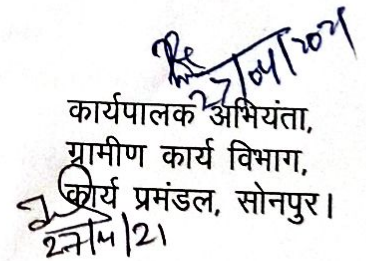 27/04/2021
कार्यपालक अभियंता,
ग्रामीण कार्य विभाग,
कार्य प्रमंडल, सोनपुर।
27/4/21